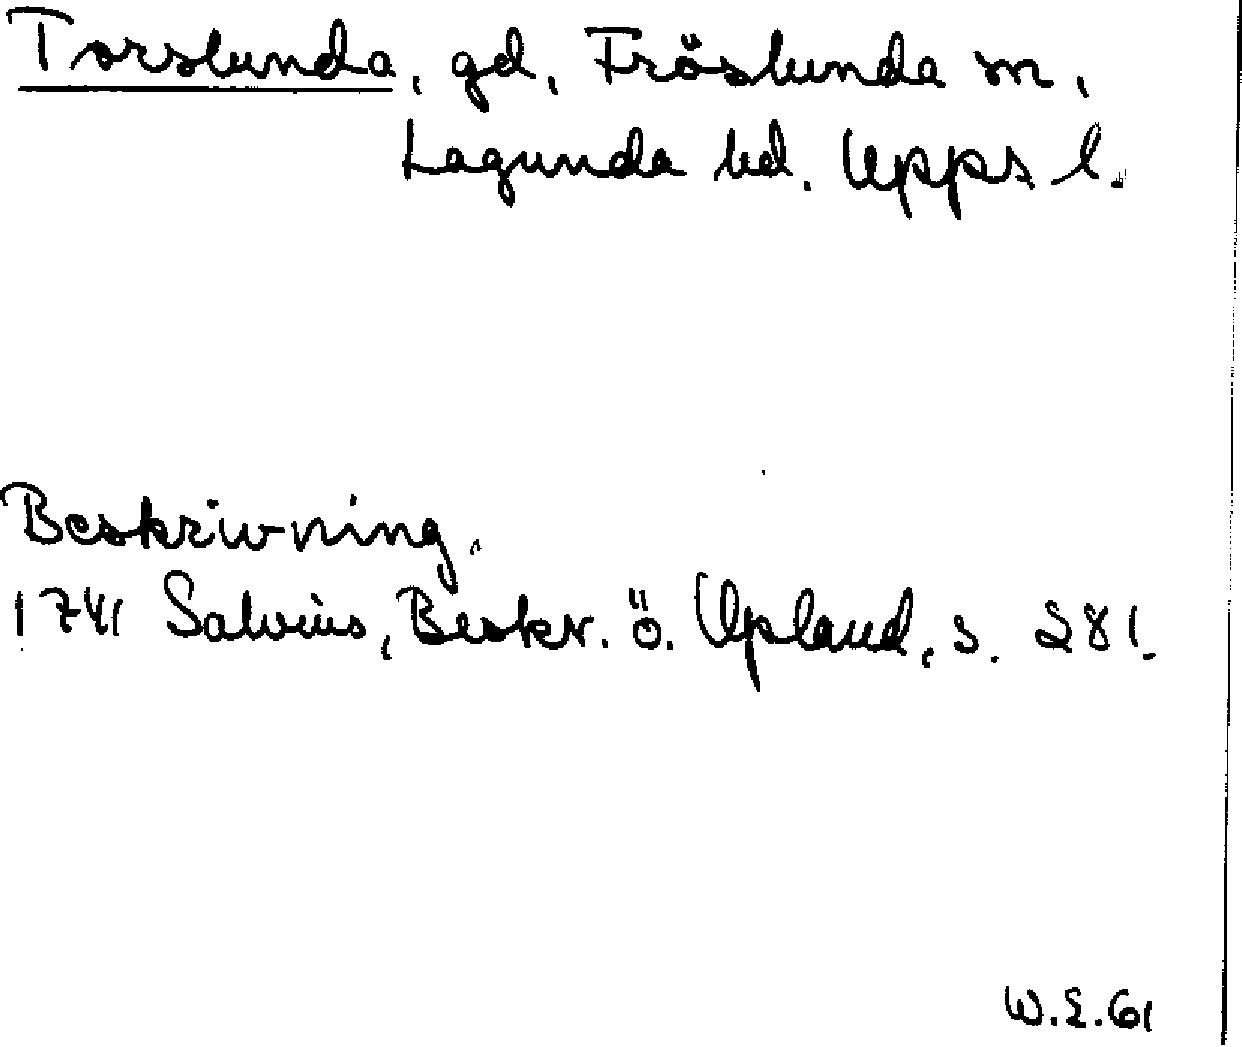 Torslunda, gd, Fröslunda sn,
Lagunda hd. Upps l.
Beskrivning.
1741 Salvius, Beskr. ö. Upland, s. 281.
W.E.61